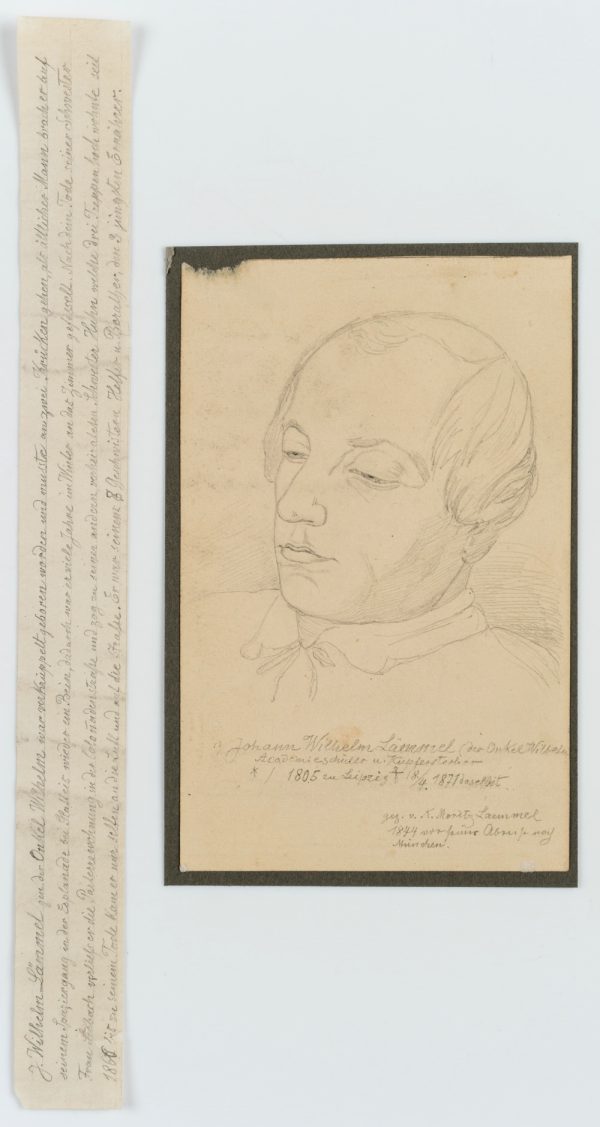 J. Wilhelm Lämmel gen. der Onkel Wilhelm war verkrüppelt geboren worden und musste an zwei Krücken gehen, als ältlicher Mann brach er auf
seinem Spaziergang in der Esplanade bei Glatteis wieder ein Bein, dadurch war er viele Jahre im Winter an das Zimmer gefesselt. Nach dem Tode seiner Schwester
Frau verliess er die Parterrewohnung in der Colonadenstraße und zog zu seiner anderen verheirateten Schwester Huhn welche drei Treppen hoch wohnte seit
186 bis zu seinem Tode kam er nur selten an die Luft und auf die Straße. Er war seinen 8 Geschwistern Helfer u. Berather, den 3 jüngsten Ernährer.
Johann Wilhelm Lämmel (der Onkel Wilhelm
Academieschüler u. Kupferstecher
* / 1805 zu Leipzig † 18/4. 1871 daselbst
gez. v. K. Moritz Laemmel
1844 vor seiner Abreise nach
München.